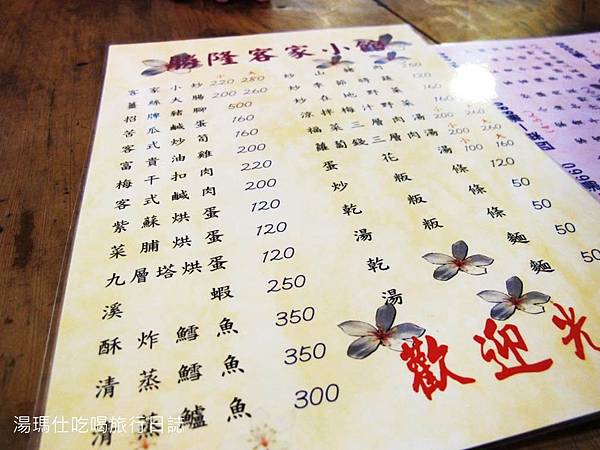 勝隆客家小館
小 大
客家小炒 220 280
薑絲大腸 200 260
招牌豬腳 500
苦瓜鹹蛋 160
客式炒筍 160
富貴油雞 200
梅干扣肉 220
客式鹹肉 200
紫蘇烘蛋 120
菜脯烘蛋 120
九層塔烘蛋 120
溪蝦 250
酥炸鱈魚 350
清蒸鱈魚 350
清蒸鱸魚 300
炒山豬肉 250
炒季節時蔬 120
炒在地野菜 160
涼拌梅汁野菜 160
小 大
福菜三層肉湯 200 260
蘿蔔錢三層肉湯 200 260
蛋花湯 100 160
炒粄條 120
乾粄條 50
湯粄條 50
乾麵 50
湯麵 50
歡迎光
湯瑪仕吃喝旅行日誌